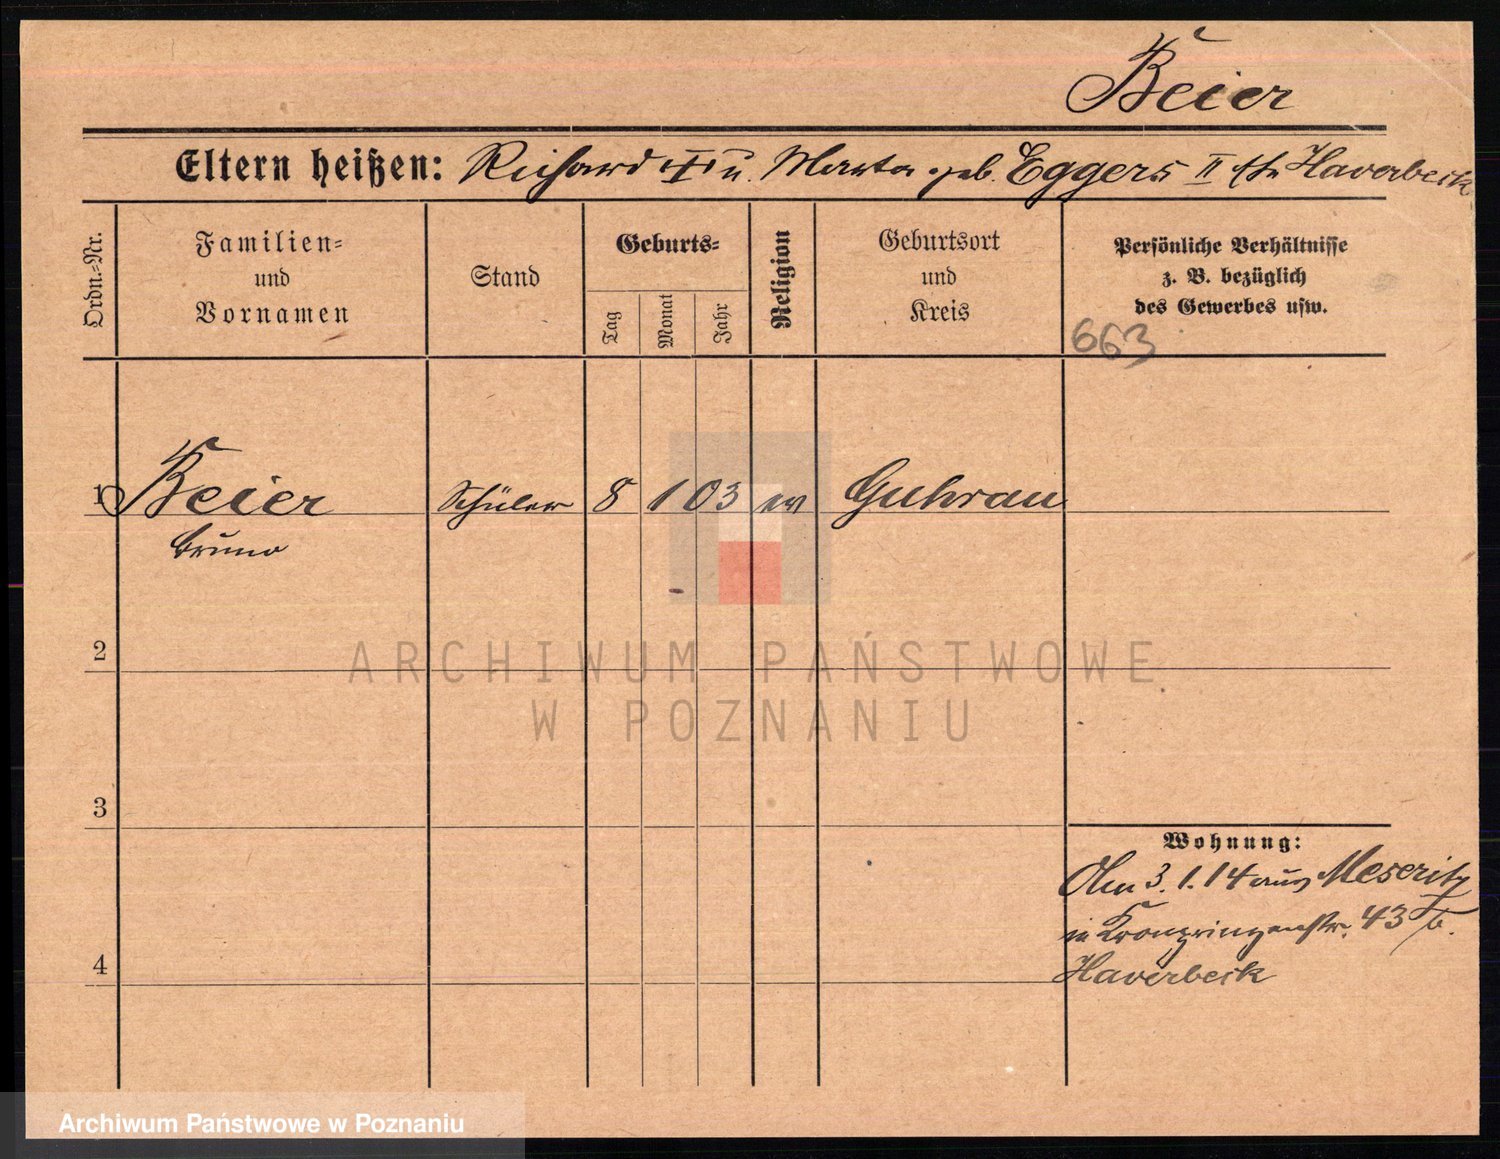 Beier
Eltern heißen: Richard I u. Marta geb. Eggers II Haverbeck
Ordn.=Nr.
Familien=
und
Vornamen
Stand
Geburts=
Tag
Monat
Jahr
Religion
Geburtsort
und
Kreis
Persönliche Verhältnisse
z. B. bezüglich
des Gewerbes usw.
663
1 Beier Schüler 8 1 03 ev Guhrau
Bruno
2
3
4
Wohnung:
Am 3.1.14 aus Meseritz
in Kronprinzenstr. 43 b.
Haverbeck
ARCHIWUM PAŃSTWOWE
W POZNANIU
Archiwum Państwowe w Poznaniu